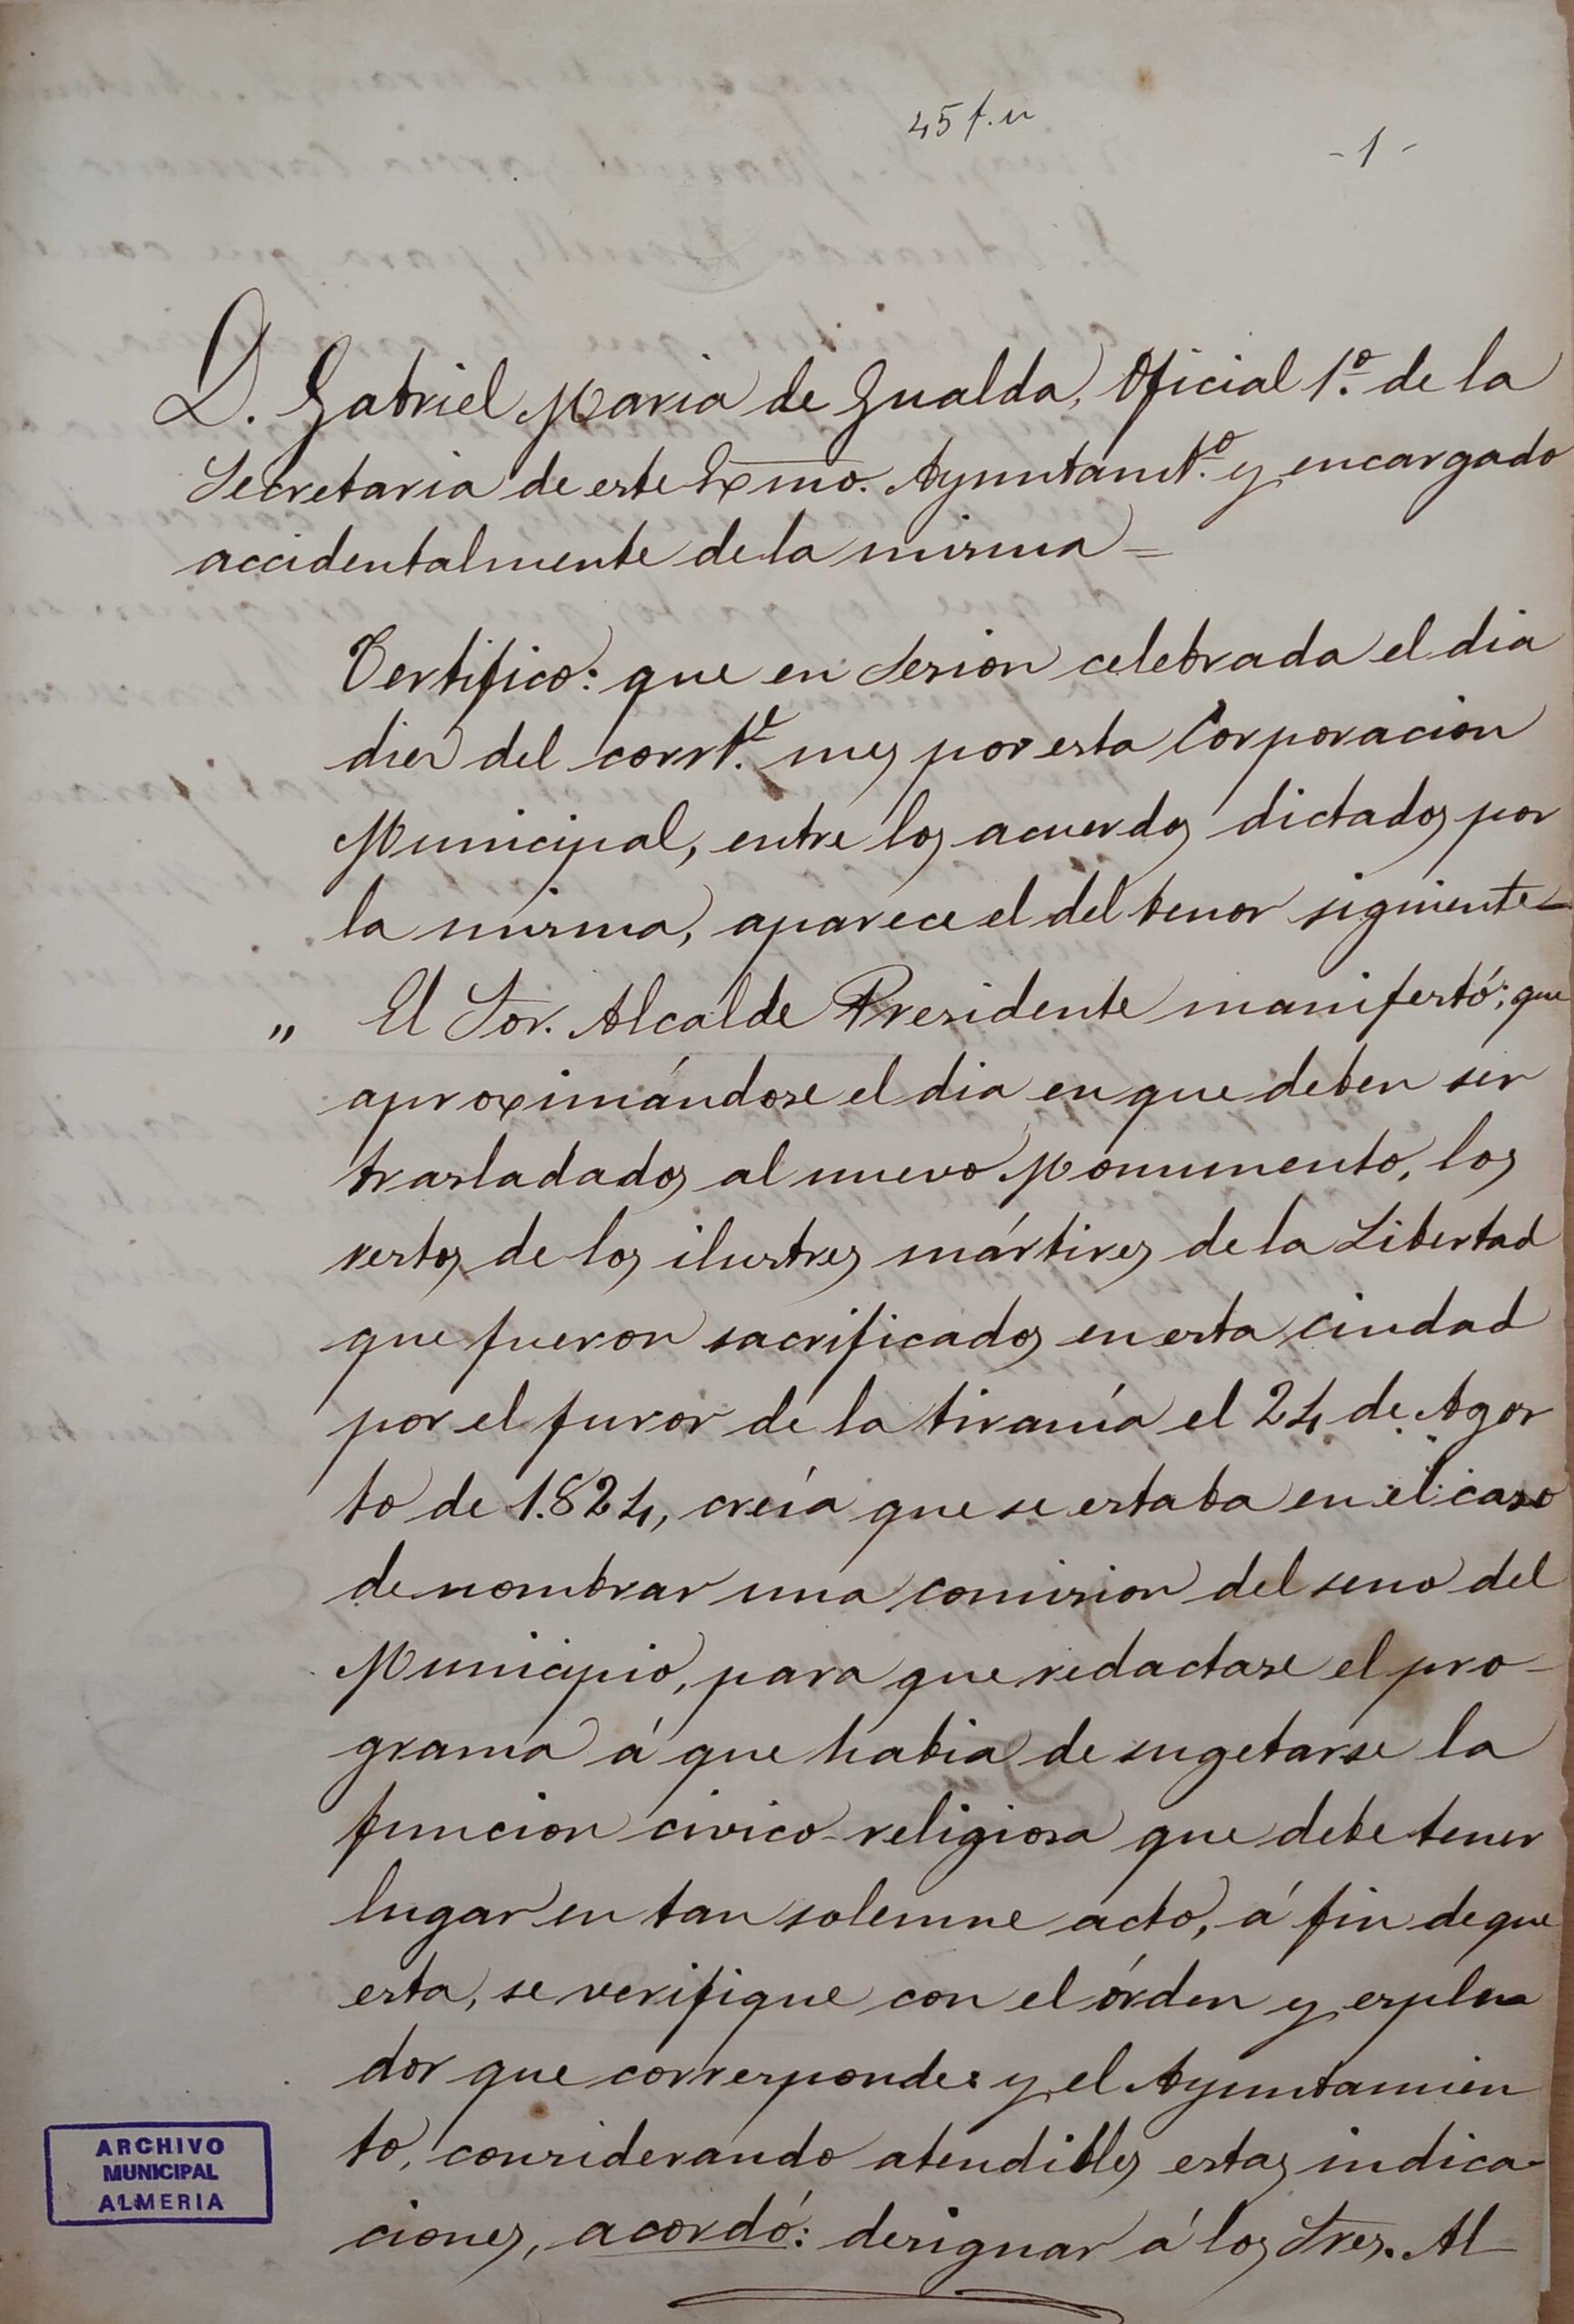 45 f. u
- 1 -
D. Gabriel Maria de Gualda, Oficial 1.º de la
Secretaria de este Exmo. Ayuntamt.º y encargado
accidentalmente de la misma =
Certifico: que en sesion celebrada el dia
diez del corrt.e mes por esta Corporacion
Municipal, entre los acuerdos dictados por
la misma, aparece el del tenor siguiente =
" El Sor. Alcalde Presidente manifestó; que
aproximándose el dia en que deben ser
trasladados al nuevo Monumento, los
restos de los ilustres mártires de la Libertad
que fueron sacrificados en esta ciudad
por el furor de la tiranía el 24 de Agos
to de 1.824, creía que se estaba en el caso
de nombrar una comision del seno del
Municipio, para que redactase el pro-
grama á que habia de sugetarse la
funcion civico-religiosa que debe tener
lugar en tan solemne acto, á fin de que
esta, se verifique con el órden y esplen
dor que corresponde: y el Ayuntamien
to, considerando atendibles estas indica-
ciones, acordó: designar á los Sres. Al
ARCHIVO
MUNICIPAL
ALMERIA